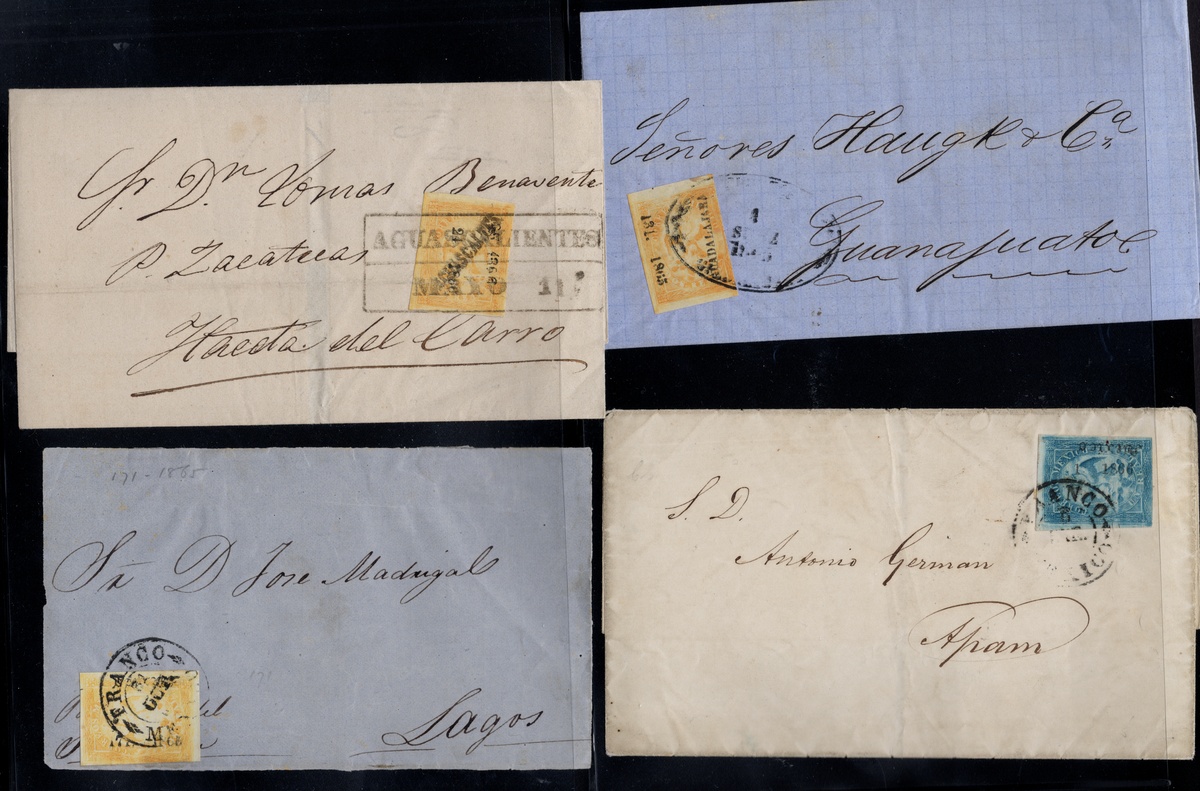 Sr. Dn. Tomas Benavente
P. Zacatecas
Hacda. del Carro
AGUASCALIENTES
MAYO 11
AGUASCALIENTES
1866
Señores Haugk & Ca.
Guanajuato
GUADALAJARA
181. 1865
1
171-1865
Sr. D Jose Madrigal
Lagos
171
FRANCO
OCT
S. D.
Antonio German
Apam
1866
FRANCO
MEXICO